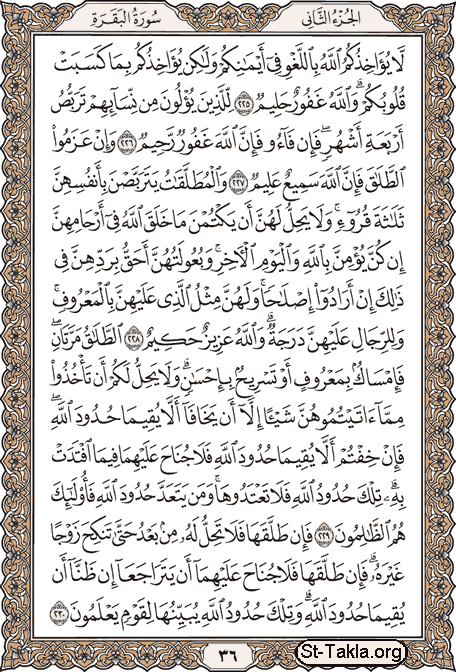 الجُزْءُ الثَّانِي
سُورَةُ البَقَرَةِ
لَّا يُؤَاخِذُكُمُ ٱللَّهُ بِٱللَّغْوِ فِىٓ أَيْمَٰنِكُمْ وَلَٰكِن يُؤَاخِذُكُم بِمَا كَسَبَتْ
قُلُوبُكُمْ ۗ وَٱللَّهُ غَفُورٌ حَلِيمٌ ٢٢٥ لِّلَّذِينَ يُؤْلُونَ مِن نِّسَآئِهِمْ تَرَبُّصُ
أَرْبَعَةِ أَشْهُرٍ ۖ فَإِن فَآءُو فَإِنَّ ٱللَّهَ غَفُورٌ رَّحِيمٌ ٢٢٦ وَإِنْ عَزَمُوا۟
ٱلطَّلَٰقَ فَإِنَّ ٱللَّهَ سَمِيعٌ عَلِيمٌ ٢٢٧ وَٱلْمُطَلَّقَٰتُ يَتَرَبَّصْنَ بِأَنفُسِهِنَّ
ثَلَٰثَةَ قُرُوٓءٍ ۚ وَلَا يَحِلُّ لَهُنَّ أَن يَكْتُمْنَ مَا خَلَقَ ٱللَّهُ فِىٓ أَرْحَامِهِنَّ
إِن كُنَّ يُؤْمِنَّ بِٱللَّهِ وَٱلْيَوْمِ ٱلْءَاخِرِ ۚ وَبُعُولَتُهُنَّ أَحَقُّ بِرَدِّهِنَّ فِى
ذَٰلِكَ إِنْ أَرَادُوٓا۟ إِصْلَٰحًا ۚ وَلَهُنَّ مِثْلُ ٱلَّذِى عَلَيْهِنَّ بِٱلْمَعْرُوفِ ۚ
وَلِلرِّجَالِ عَلَيْهِنَّ دَرَجَةٌ ۗ وَٱللَّهُ عَزِيزٌ حَكِيمٌ ٢٢٨ ٱلطَّلَٰقُ مَرَّتَانِ ۖ
فَإِمْسَاكٌۢ بِمَعْرُوفٍ أَوْ تَسْرِيحٌۢ بِإِحْسَٰنٍ ۗ وَلَا يَحِلُّ لَكُمْ أَن تَأْخُذُوا۟
مِمَّآ ءَاتَيْتُمُوهُنَّ شَيْـًٔا إِلَّآ أَن يَخَافَآ أَلَّا يُقِيمَا حُدُودَ ٱللَّهِ ۖ
فَإِنْ خِفْتُمْ أَلَّا يُقِيمَا حُدُودَ ٱللَّهِ فَلَا جُنَاحَ عَلَيْهِمَا فِيمَا ٱفْتَدَتْ
بِهِۦ ۗ تِلْكَ حُدُودُ ٱللَّهِ فَلَا تَعْتَدُوهَا ۚ وَمَن يَتَعَدَّ حُدُودَ ٱللَّهِ فَأُو۟لَٰٓئِكَ
هُمُ ٱلظَّٰلِمُونَ ٢٢٩ فَإِن طَلَّقَهَا فَلَا تَحِلُّ لَهُۥ مِنۢ بَعْدُ حَتَّىٰ تَنكِحَ زَوْجًا
غَيْرَهُۥ ۗ فَإِن طَلَّقَهَا فَلَا جُنَاحَ عَلَيْهِمَآ أَن يَتَرَاجَعَآ إِن ظَنَّآ أَن
يُقِيمَا حُدُودَ ٱللَّهِ ۗ وَتِلْكَ حُدُودُ ٱللَّهِ يُبَيِّنُهَا لِقَوْمٍ يَعْلَمُونَ ٢٣٠
٣٦
St-Takla.org